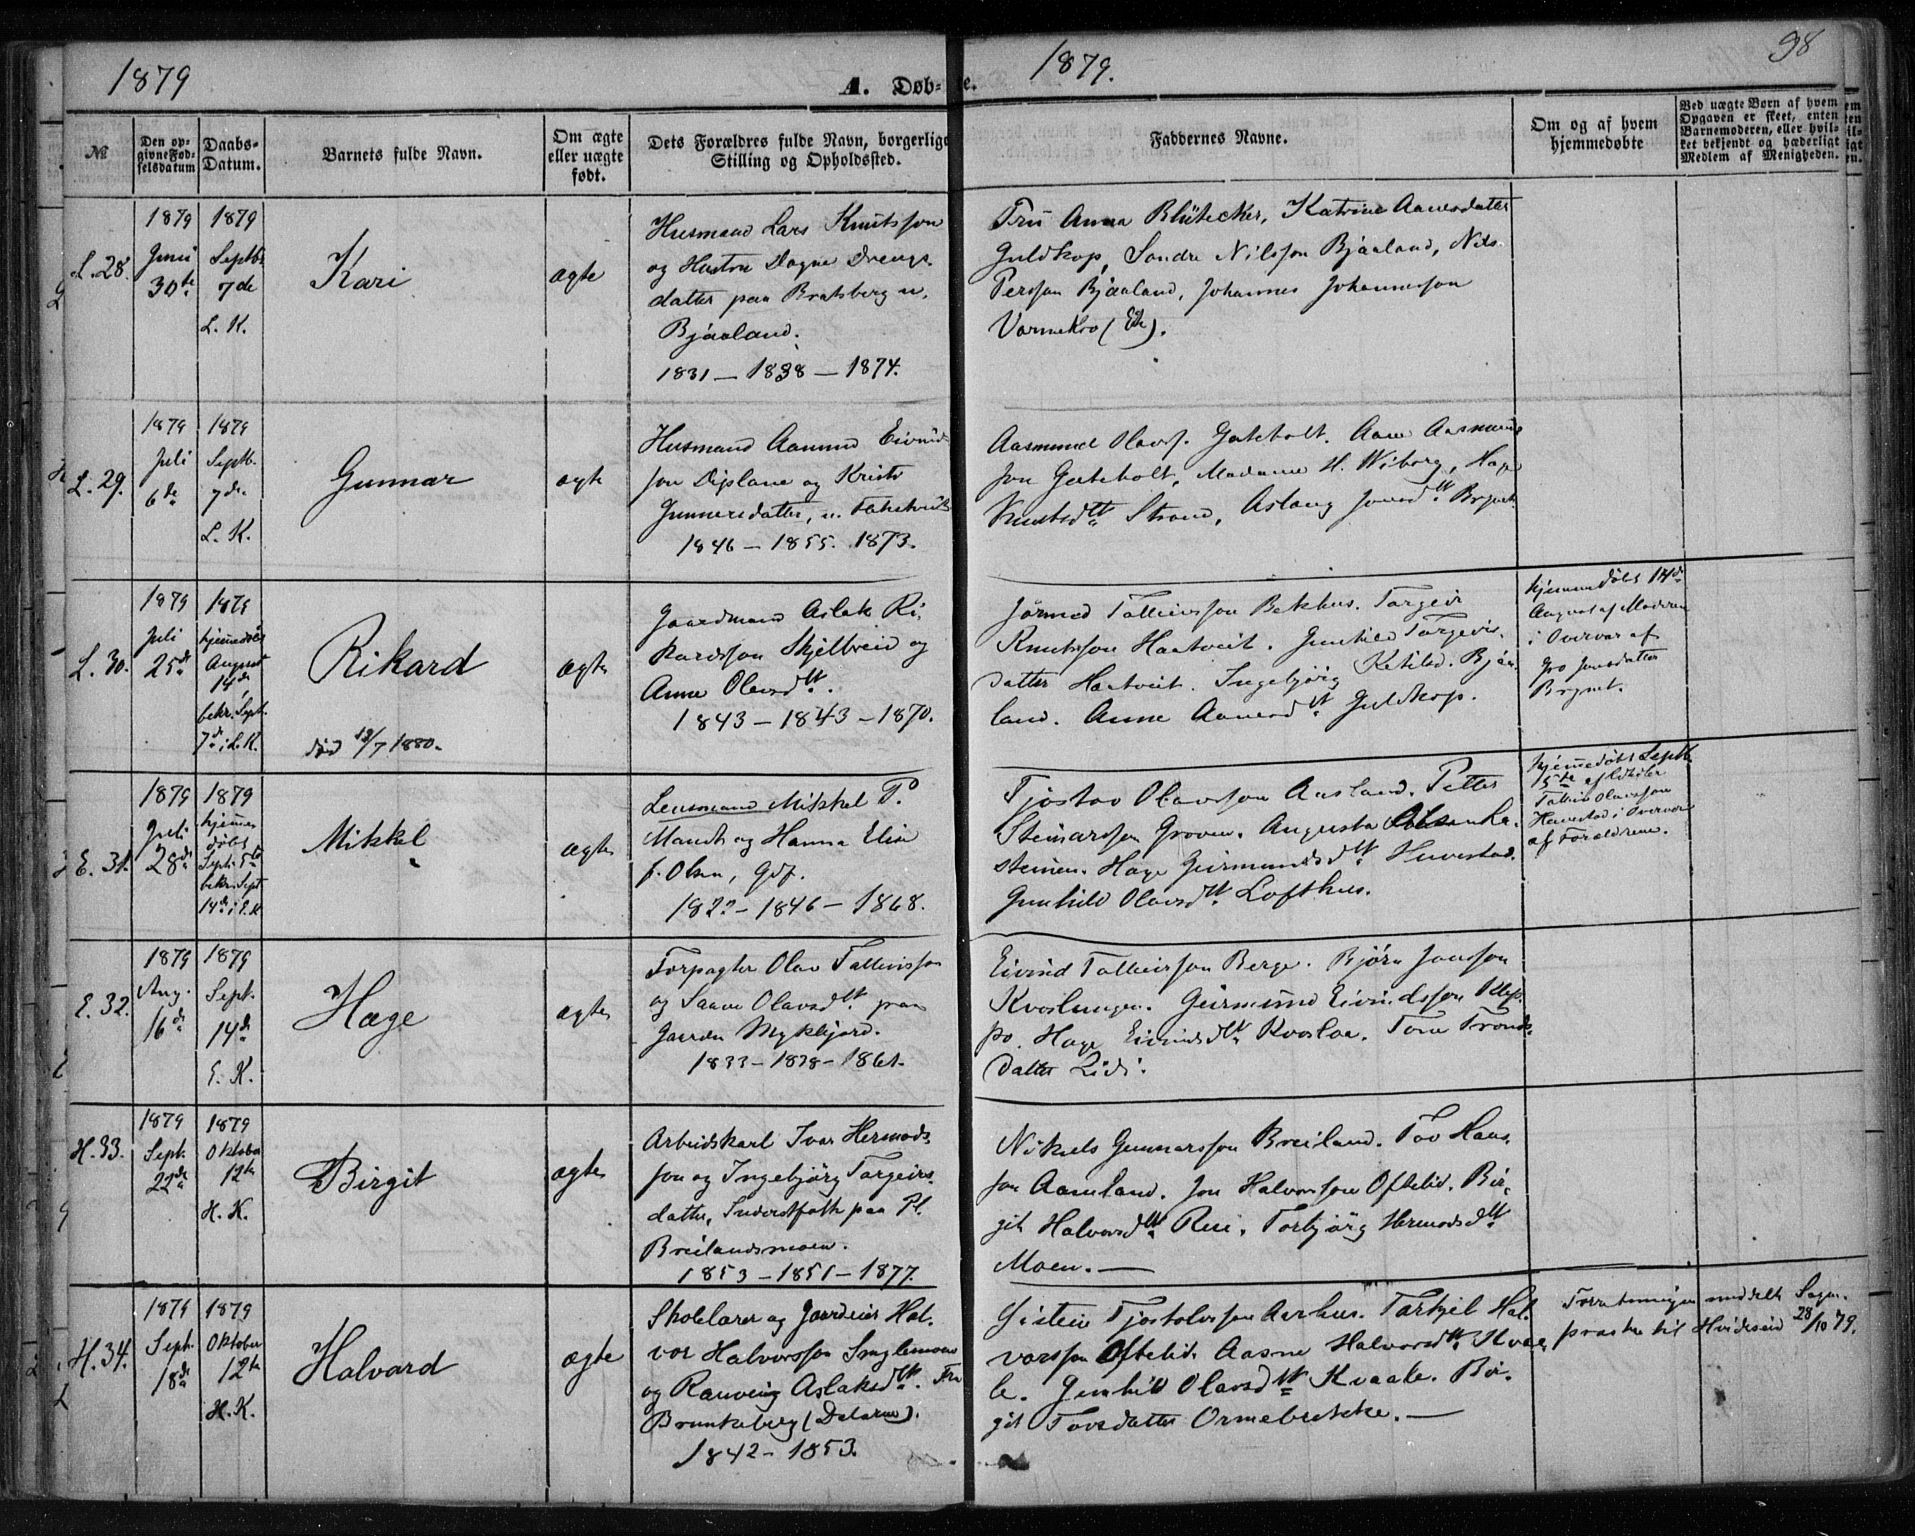 1879
1879.
98
A. Døb-
te.
№
Den op-
givne Fød-
selsdatum
Daabs-
Datum.
Barnets fulde Navn.
Om ægte
eller uægte
født.
Dets Forældres fulde Navn, borgerlige
Stilling og Opholdssted.
Faddernes Navne.
Om og af hvem
hjemmedøbte
Ved uægte Børn af hvem
Opgaven er skeet, enten
Barnemoderen, eller hvil-
ket bekjendt og hæderligt
Medlem af Menigheden.
L. 28.
1879
Juni
30te
1879
Septbr
7de
L. K.
Kari
ægte
Husmand Lars Knutsson
og Hustru Dagne Drengs-
datter paa Bratsberg u.
Bjåaland.
1831 — 1838 — 1874.
Fru Anna Blütecher, Katrine Aanesdatter
Guldkop, Sondre Nilsson Bjåaland, Nils
Persson Bjåaland, Johannes Johannesson
Varmekro
L. 29.
1879
Juli
6de
1879
Septb.
7de
L. K.
Gunnar
ægte
Husmand Aamund Eivind-
son Diplane og Kristi
Gunnersdatter, u.
1846 — 1855. 1873.
Aasmund Olavs. Gateholt. Aane Aasmund-
son Gateholt, Madame H. Wiborg, Hage
Knutsdtr Strand, Aslaug Jonsdtr Brynt.
L. 30.
1879
Juli
25de
1879
hjemmedøbt
August
14de
bekr. Sept.
7de i L. K.
Rikard
død 12/7 1880.
ægte
Gaardmand Aslak Ri-
kardsson Skjelbreid og
Anne Olavsdtr.
1843 — 1843 — 1870.
Jørmed Tallevsson Bekhus. Targeir
Knutsson Haatveit. Gunhild Targeirs-
datter Haatveit. Ingebjörg Ketilsd. Bjåa-
land. Anne Aanesdtr Guldkop.
hjemmedøbt 14de
August af Moderen
i Overvær af
Gro Jonsdatter
Brynt.
E. 31.
1879
Juli
28de
1879
hjemme-
døbt
Sept. 5te
bekr. Sept
14de i E. K.
Mikkel
ægte
Lensmand Mikkel P.
Mandt og Hanna Elise
f. Olsen, Gdf.
1822 — 1846 — 1868.
Tjøstov Olavsson Aasland. Petter
Steinarsson Groven. Augusta Olsen Ka-
steinen. Hage Geirmundsdtr Huvestad.
Gunhild Olavsdtr Lofthus.
hjemmedøbt Septb
5te af
Tallev Olavsson
Huvestad i Overvær
af Forældrene.
E. 32.
1879
Aug.
16de
1879
Sept.
14de
E. K.
Hæge
ægte
Forpagter Olav Tallevsson
og Saave Olavsdtr paa
Gaarden Myklejord.
1833 — 1838 — 1861.
Eivind Talleivsson Berge. Bjørn Jonsson
Kvoslungen. Geirmund Eivindsson
Hage Eivindsdtr Kvosloe. Tone Tronds-
datter Lidi.
H. 33.
1879
Sept.
22de
1879
Oktober
12te
H. K.
Birgit
ægte
Arbeidskarl Ivar Hermods-
son og Ingebjörg Targeirs-
datter, Inderstfolk paa Pl.
Breilandsmoen.
1853 — 1851 — 1877.
Nikuls Gunnarsson Breiland. Tov Hans-
son Aamland. Jon Halvorsson Oftelid. Bir-
git Halvorsdtr Rui. Torbjörg Hermodsdtr
Moen. —
H. 34.
1879
Sept.
18de
1879
Oktober
12te
H. K.
Halvard
ægte
Skolelærer og Gaardeier Hal-
vor Halvorsson Smglemoen
og Ranveig Aslaksdtr. Fra
Brunkeberg (Dalane).
1842 — 1853.
Gistein Tjostolvsson Aarhus. Tarkjel Hal-
vorsson Oftelid. Aasne Halvorsdtr Kvaa-
le. Gunhild Olavsdtr Kvaale. Bir-
git Tovsdatter Ormebrekke. —
Forretningen meddelt Sogne-
præsten til Hvideseid 28/10 79.